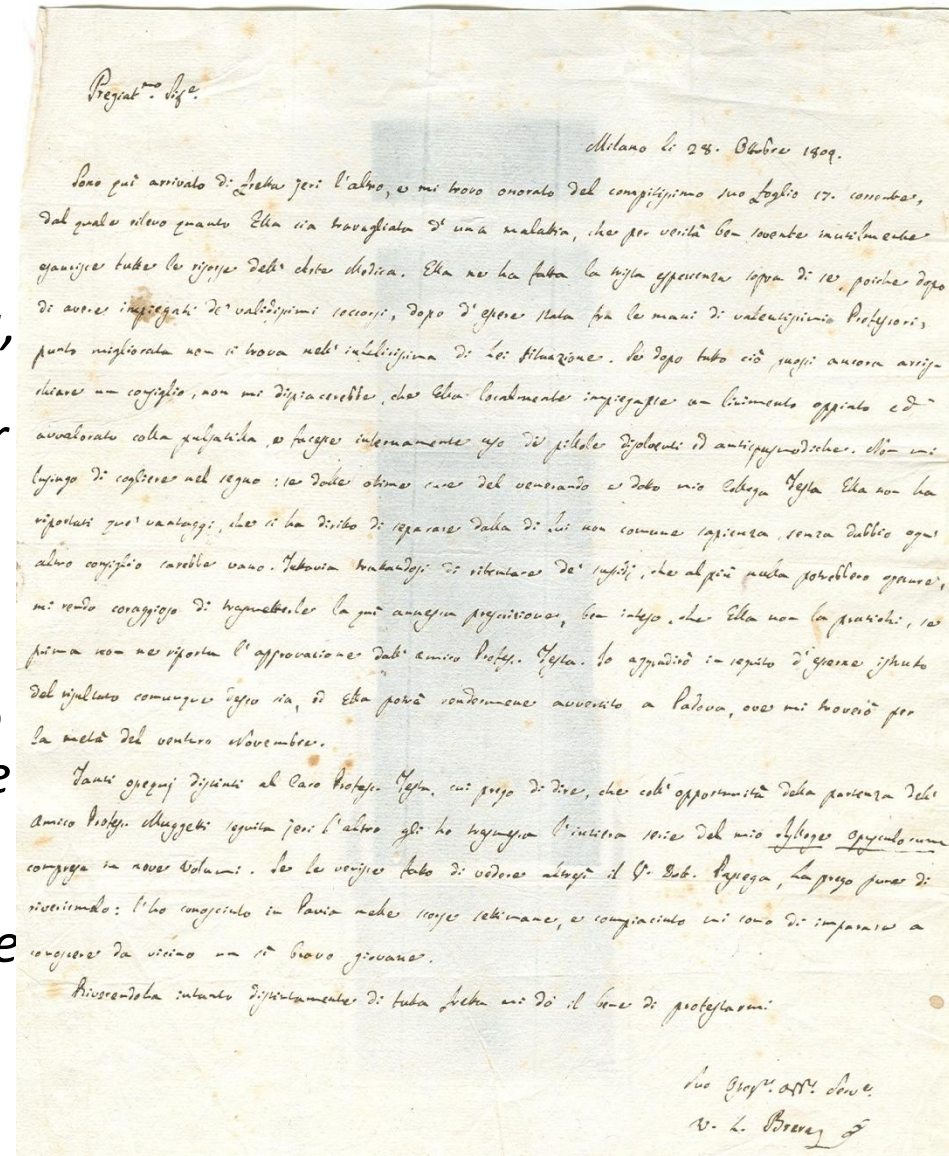 Pregiat.mo Sig.e
Milano li 28. Ottobre 1809.
Sono quì arrivato di fretta jeri l'altro, e mi trovo onorato del compitissimo suo foglio 17. corrente,
dal quale rilevo quanto Ella sia travagliata d'una malattia, che per verità ben sovente inutilmente
esaurisce tutte le risorse dell'Arte Medica. Ella ne ha fatta la trista esperienza sopra di se, poiche dopo
di avere impiegati de' validissimi soccorsi, dopo d'essere stata fra le mani di valentissimi Professori,
punto migliorata non si trova nell'infelicissima di Lei situazione. Se dopo tutto ciò puossi ancora arris-
chiare un consiglio, non mi dispiacerebbe, che Ella localmente impiegasse un linimento oppiato ed
avvalorato colla pulsatilla, e facesse internamente uso di pillole dissolventi ed antispasmodiche. Non mi
lusingo di cogliere nel segno: se dalle ottime cure del venerando e dotto mio Collega Testa Ella non ha
riportati que' vantaggi, che si ha diritto di sperare dalla di Lui non comune sapienza, senza dubbio ogni
altro consiglio sarebbe vano. Tuttavia trattandosi di ritentare de' sussidj, che al più nulla potrebbero operare,
mi rendo coraggioso di trasmetterle la quì annessa prescrizione, ben inteso, che Ella non la pratichi, se
prima non ne riporta l'approvazione dall'amico Profes. Testa. Io aggradirò in seguito d'esserne istrutto
del risultato comunque desso sia, ed Ella potrà rendermene avvertito a Padova, ove mi troverò per
la metà del venturo Novembre.
Tanti ossequj distinti al Caro Profess. Testa, cui prego di dire, che coll'opportunità della partenza dell'
Amico Profess. Muggetti seguita jeri l'altro gli ho trasmessa l'intiera serie del mio Sylloge opusculorum
compresa in nove volumi. Se le venisse fatto di vedere altresì il S.r Dott. , La prego pure di
riverirmelo: l'ho conosciuto in Pavia nelle scorse settimane, e compiaciuto mi sono di imparare a
conoscere da vicino un sì bravo giovane.
Riverendola intanto distintamente di tutta fretta mi dò il bene di protestarmi
Suo Osseq.mo Aff.mo Serv.e
V. L. Brera